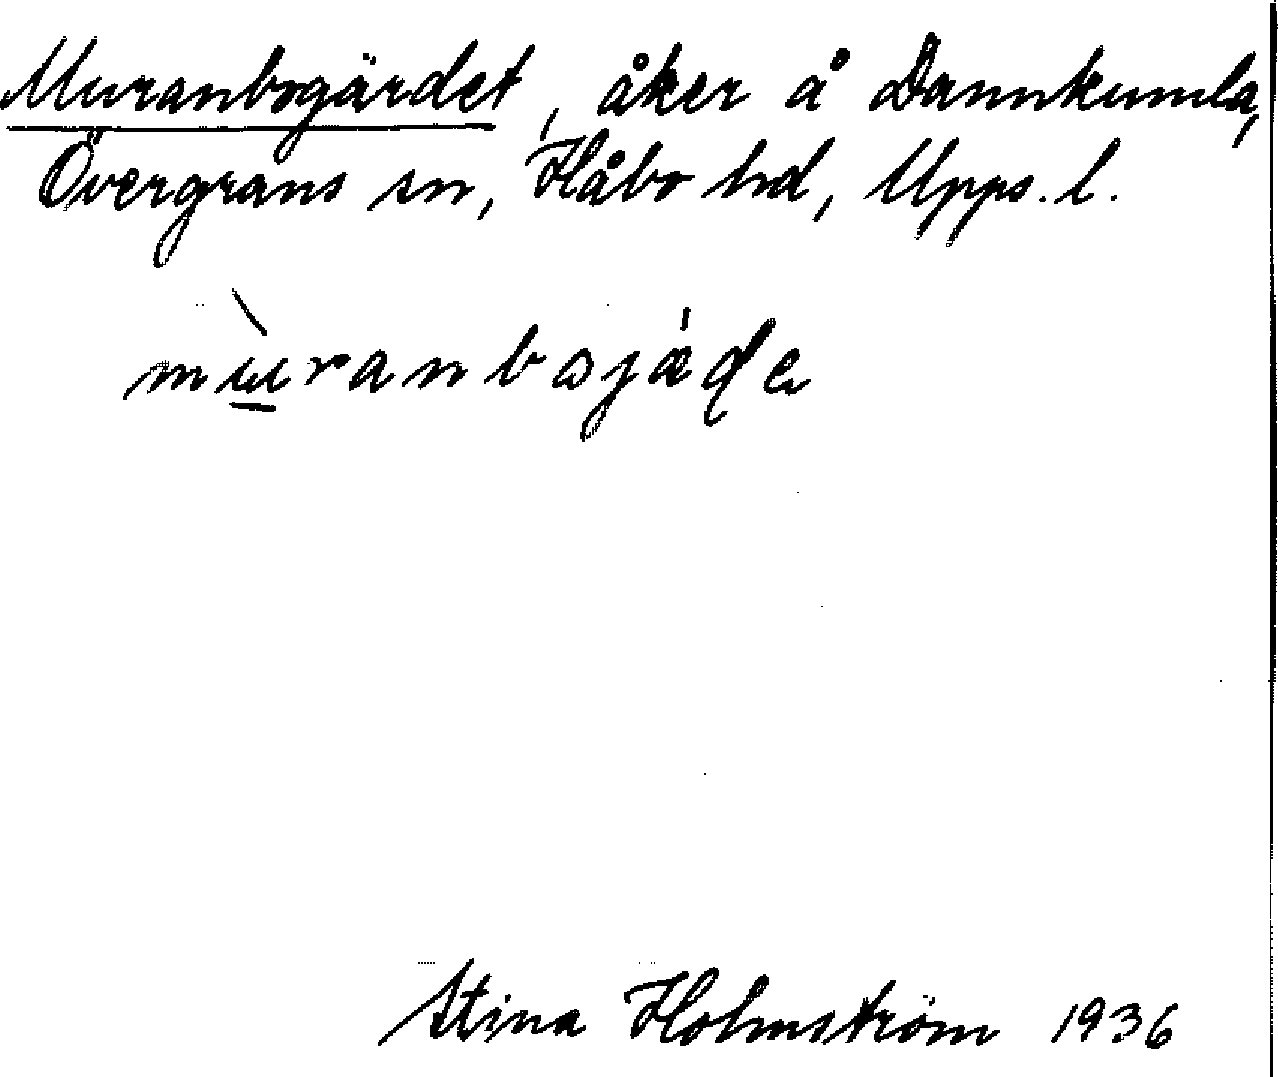 Muranbogärdet, åker å Dannkumla,
Övergrans sn, Håbo hd, Upps. l.
mùranbojǽɖe
Stina Holmström 1936